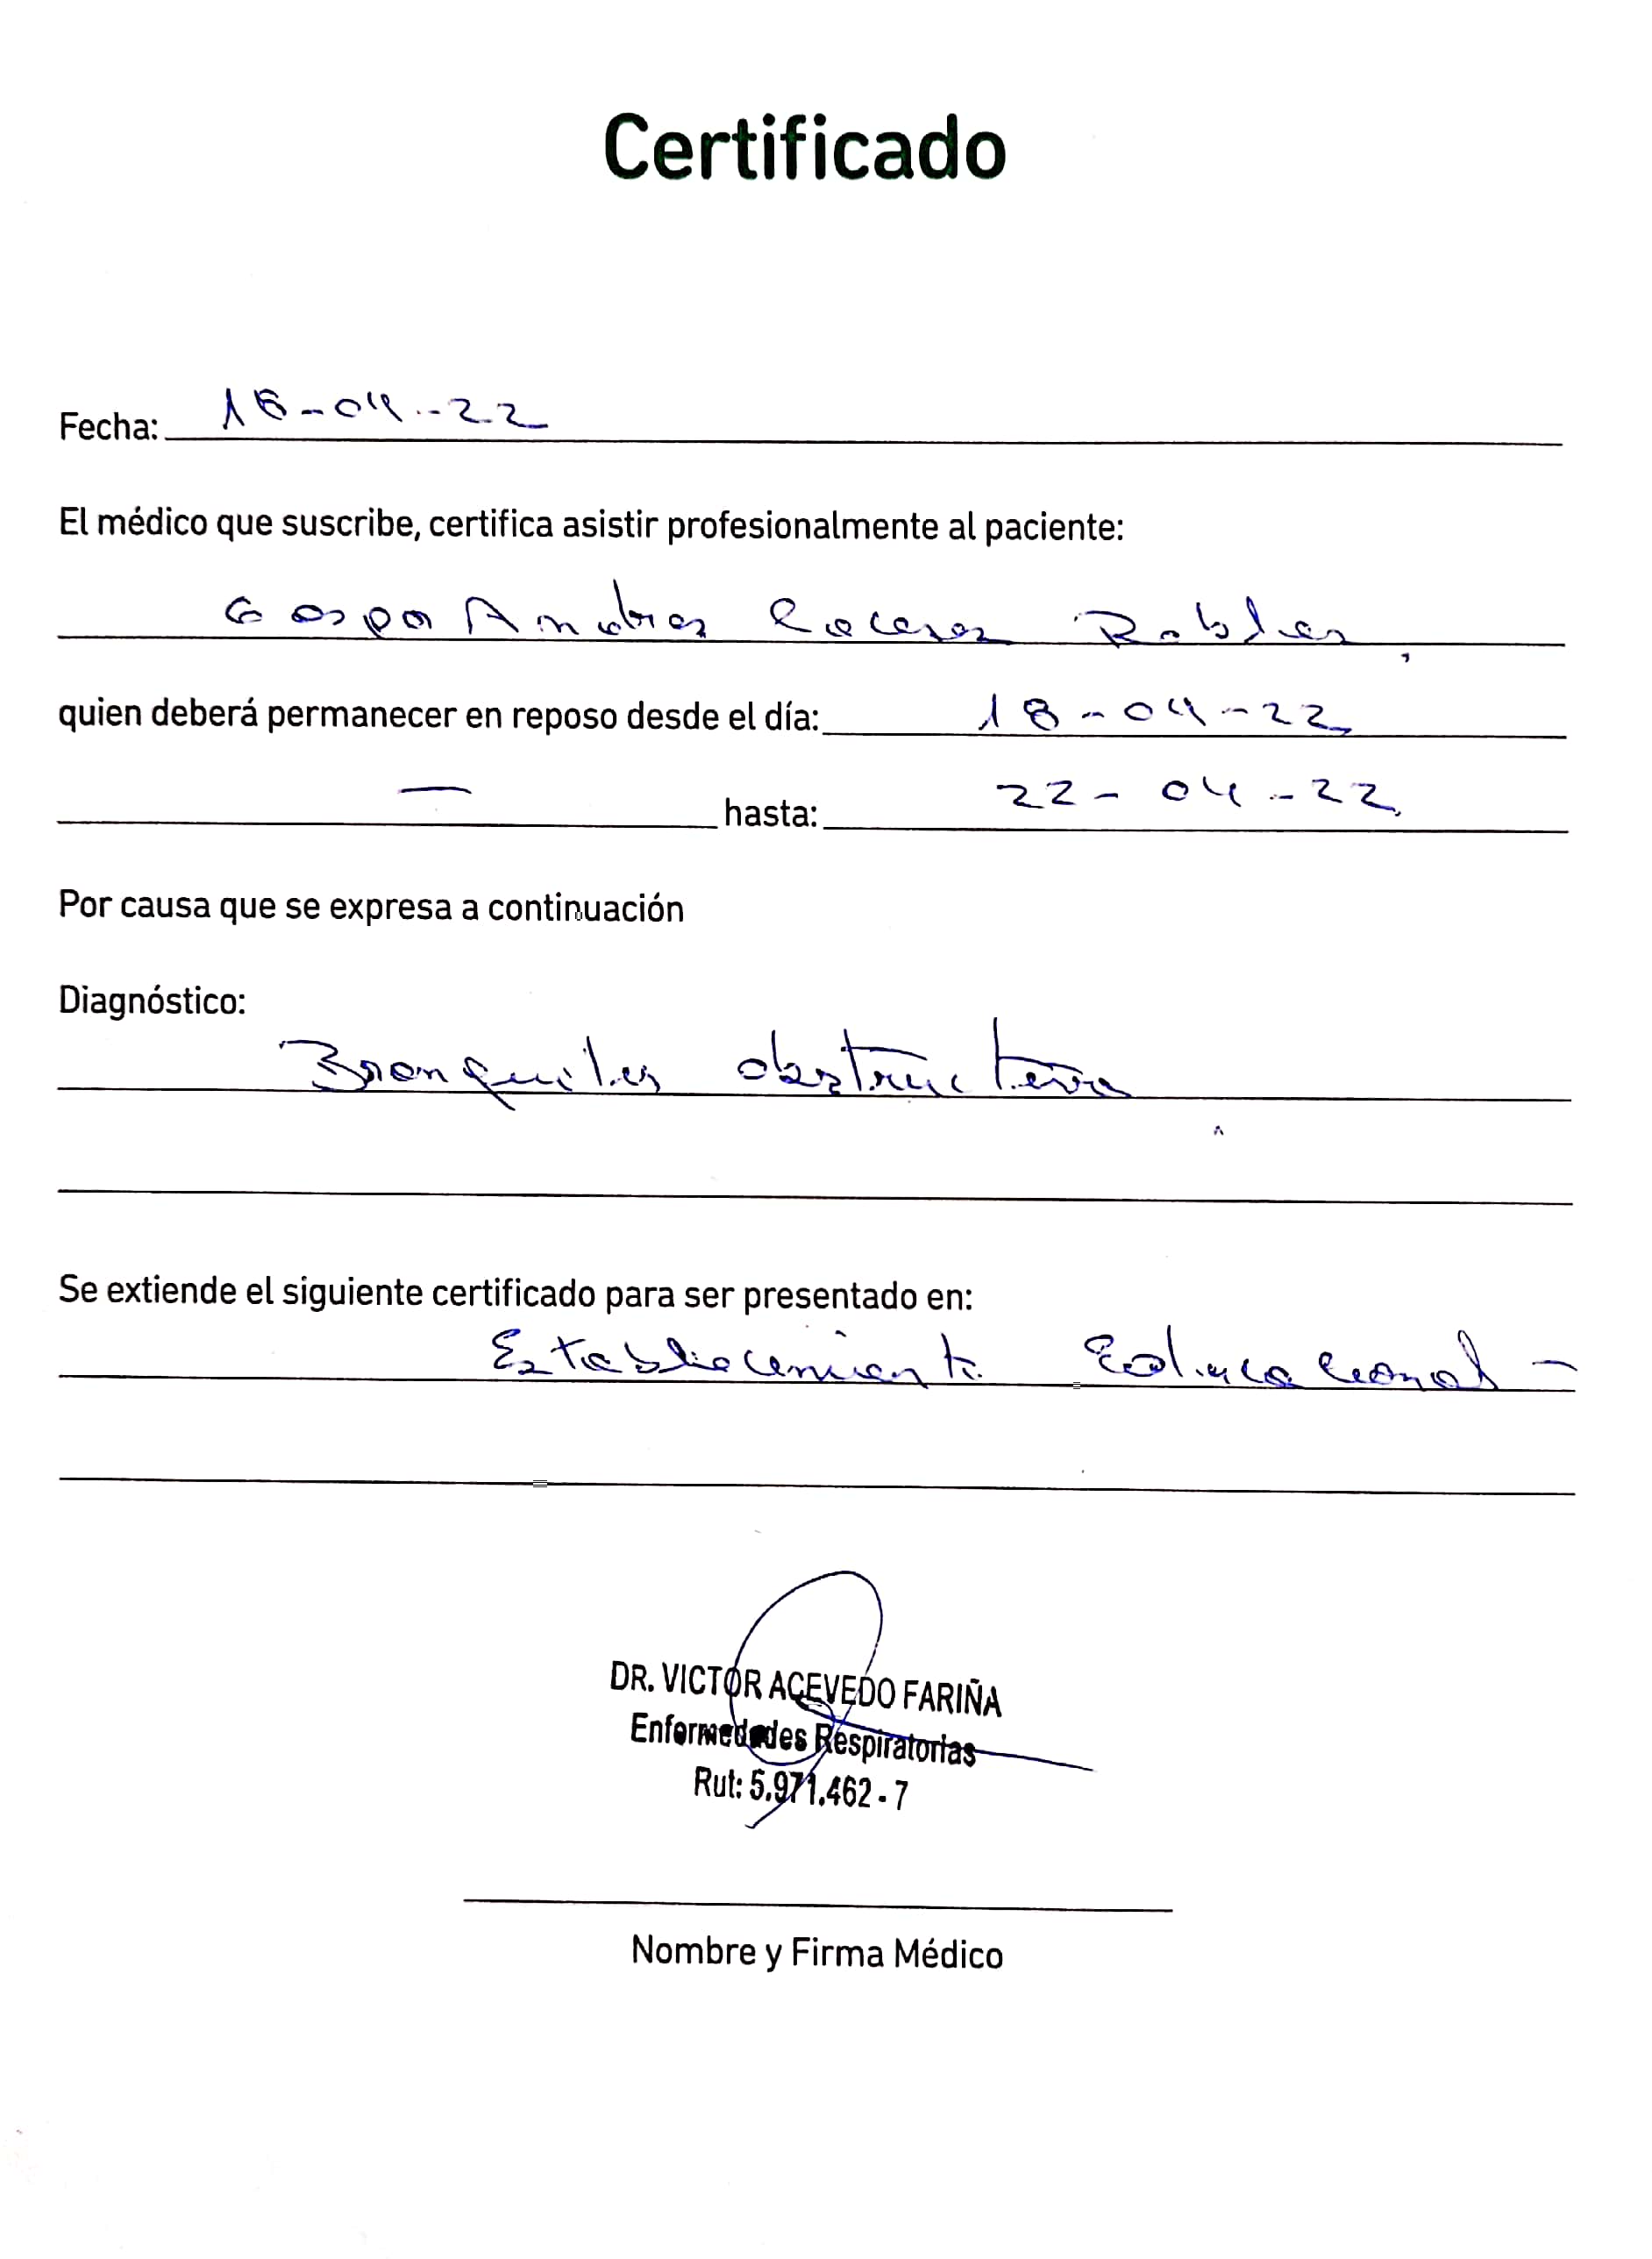 Certificado
Fecha: 18-04-22
El médico que suscribe, certifica asistir profesionalmente al paciente:
Andres Robles
quien deberá permanecer en reposo desde el día: 18-04-22
— hasta: 22-04-22
Por causa que se expresa a continuación
Diagnóstico:
Bronquitis obstructiva
Se extiende el siguiente certificado para ser presentado en:
Establecimiento Educacional —
DR. VICTOR ACEVEDO FARIÑA
Enfermedades Respiratorias
Rut: 5.971.462-7
Nombre y Firma Médico